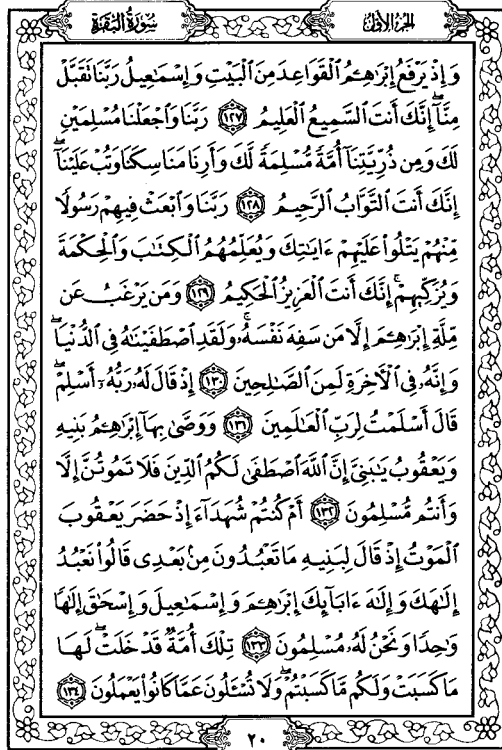 سُورَةُ البَقَرَةِ
الجزء الأول
وَإِذْ يَرْفَعُ إِبْرَٰهِـۧمُ ٱلْقَوَاعِدَ مِنَ ٱلْبَيْتِ وَإِسْمَـٰعِيلُ رَبَّنَا تَقَبَّلْ
مِنَّآ ۖ إِنَّكَ أَنتَ ٱلسَّمِيعُ ٱلْعَلِيمُ ﴿١٢٧﴾ رَبَّنَا وَٱجْعَلْنَا مُسْلِمَيْنِ
لَكَ وَمِن ذُرِّيَّتِنَآ أُمَّةً مُّسْلِمَةً لَّكَ وَأَرِنَا مَنَاسِكَنَا وَتُبْ عَلَيْنَآ ۖ
إِنَّكَ أَنتَ ٱلتَّوَّابُ ٱلرَّحِيمُ ﴿١٢٨﴾ رَبَّنَا وَٱبْعَثْ فِيهِمْ رَسُولًا
مِّنْهُمْ يَتْلُوا۟ عَلَيْهِمْ ءَايَـٰتِكَ وَيُعَلِّمُهُمُ ٱلْكِتَـٰبَ وَٱلْحِكْمَةَ
وَيُزَكِّيهِمْ ۚ إِنَّكَ أَنتَ ٱلْعَزِيزُ ٱلْحَكِيمُ ﴿١٢٩﴾ وَمَن يَرْغَبُ عَن
مِّلَّةِ إِبْرَٰهِـۧمَ إِلَّا مَن سَفِهَ نَفْسَهُۥ ۚ وَلَقَدِ ٱصْطَفَيْنَـٰهُ فِى ٱلدُّنْيَا ۖ
وَإِنَّهُۥ فِى ٱلْـَٔاخِرَةِ لَمِنَ ٱلصَّـٰلِحِينَ ﴿١٣٠﴾ إِذْ قَالَ لَهُۥ رَبُّهُۥٓ أَسْلِمْ ۖ
قَالَ أَسْلَمْتُ لِرَبِّ ٱلْعَـٰلَمِينَ ﴿١٣١﴾ وَوَصَّىٰ بِهَآ إِبْرَٰهِـۧمُ بَنِيهِ
وَيَعْقُوبُ يَـٰبَنِىَّ إِنَّ ٱللَّهَ ٱصْطَفَىٰ لَكُمُ ٱلدِّينَ فَلَا تَمُوتُنَّ إِلَّا
وَأَنتُم مُّسْلِمُونَ ﴿١٣٢﴾ أَمْ كُنتُمْ شُهَدَآءَ إِذْ حَضَرَ يَعْقُوبَ
ٱلْمَوْتُ إِذْ قَالَ لِبَنِيهِ مَا تَعْبُدُونَ مِنۢ بَعْدِى قَالُوا۟ نَعْبُدُ
إِلَـٰهَكَ وَإِلَـٰهَ ءَابَآئِكَ إِبْرَٰهِـۧمَ وَإِسْمَـٰعِيلَ وَإِسْحَـٰقَ إِلَـٰهًا
وَٰحِدًا وَنَحْنُ لَهُۥ مُسْلِمُونَ ﴿١٣٣﴾ تِلْكَ أُمَّةٌ قَدْ خَلَتْ ۖ لَهَا
مَا كَسَبَتْ وَلَكُم مَّا كَسَبْتُمْ ۖ وَلَا تُسْـَٔلُونَ عَمَّا كَانُوا۟ يَعْمَلُونَ ﴿١٣٤﴾
٢٠